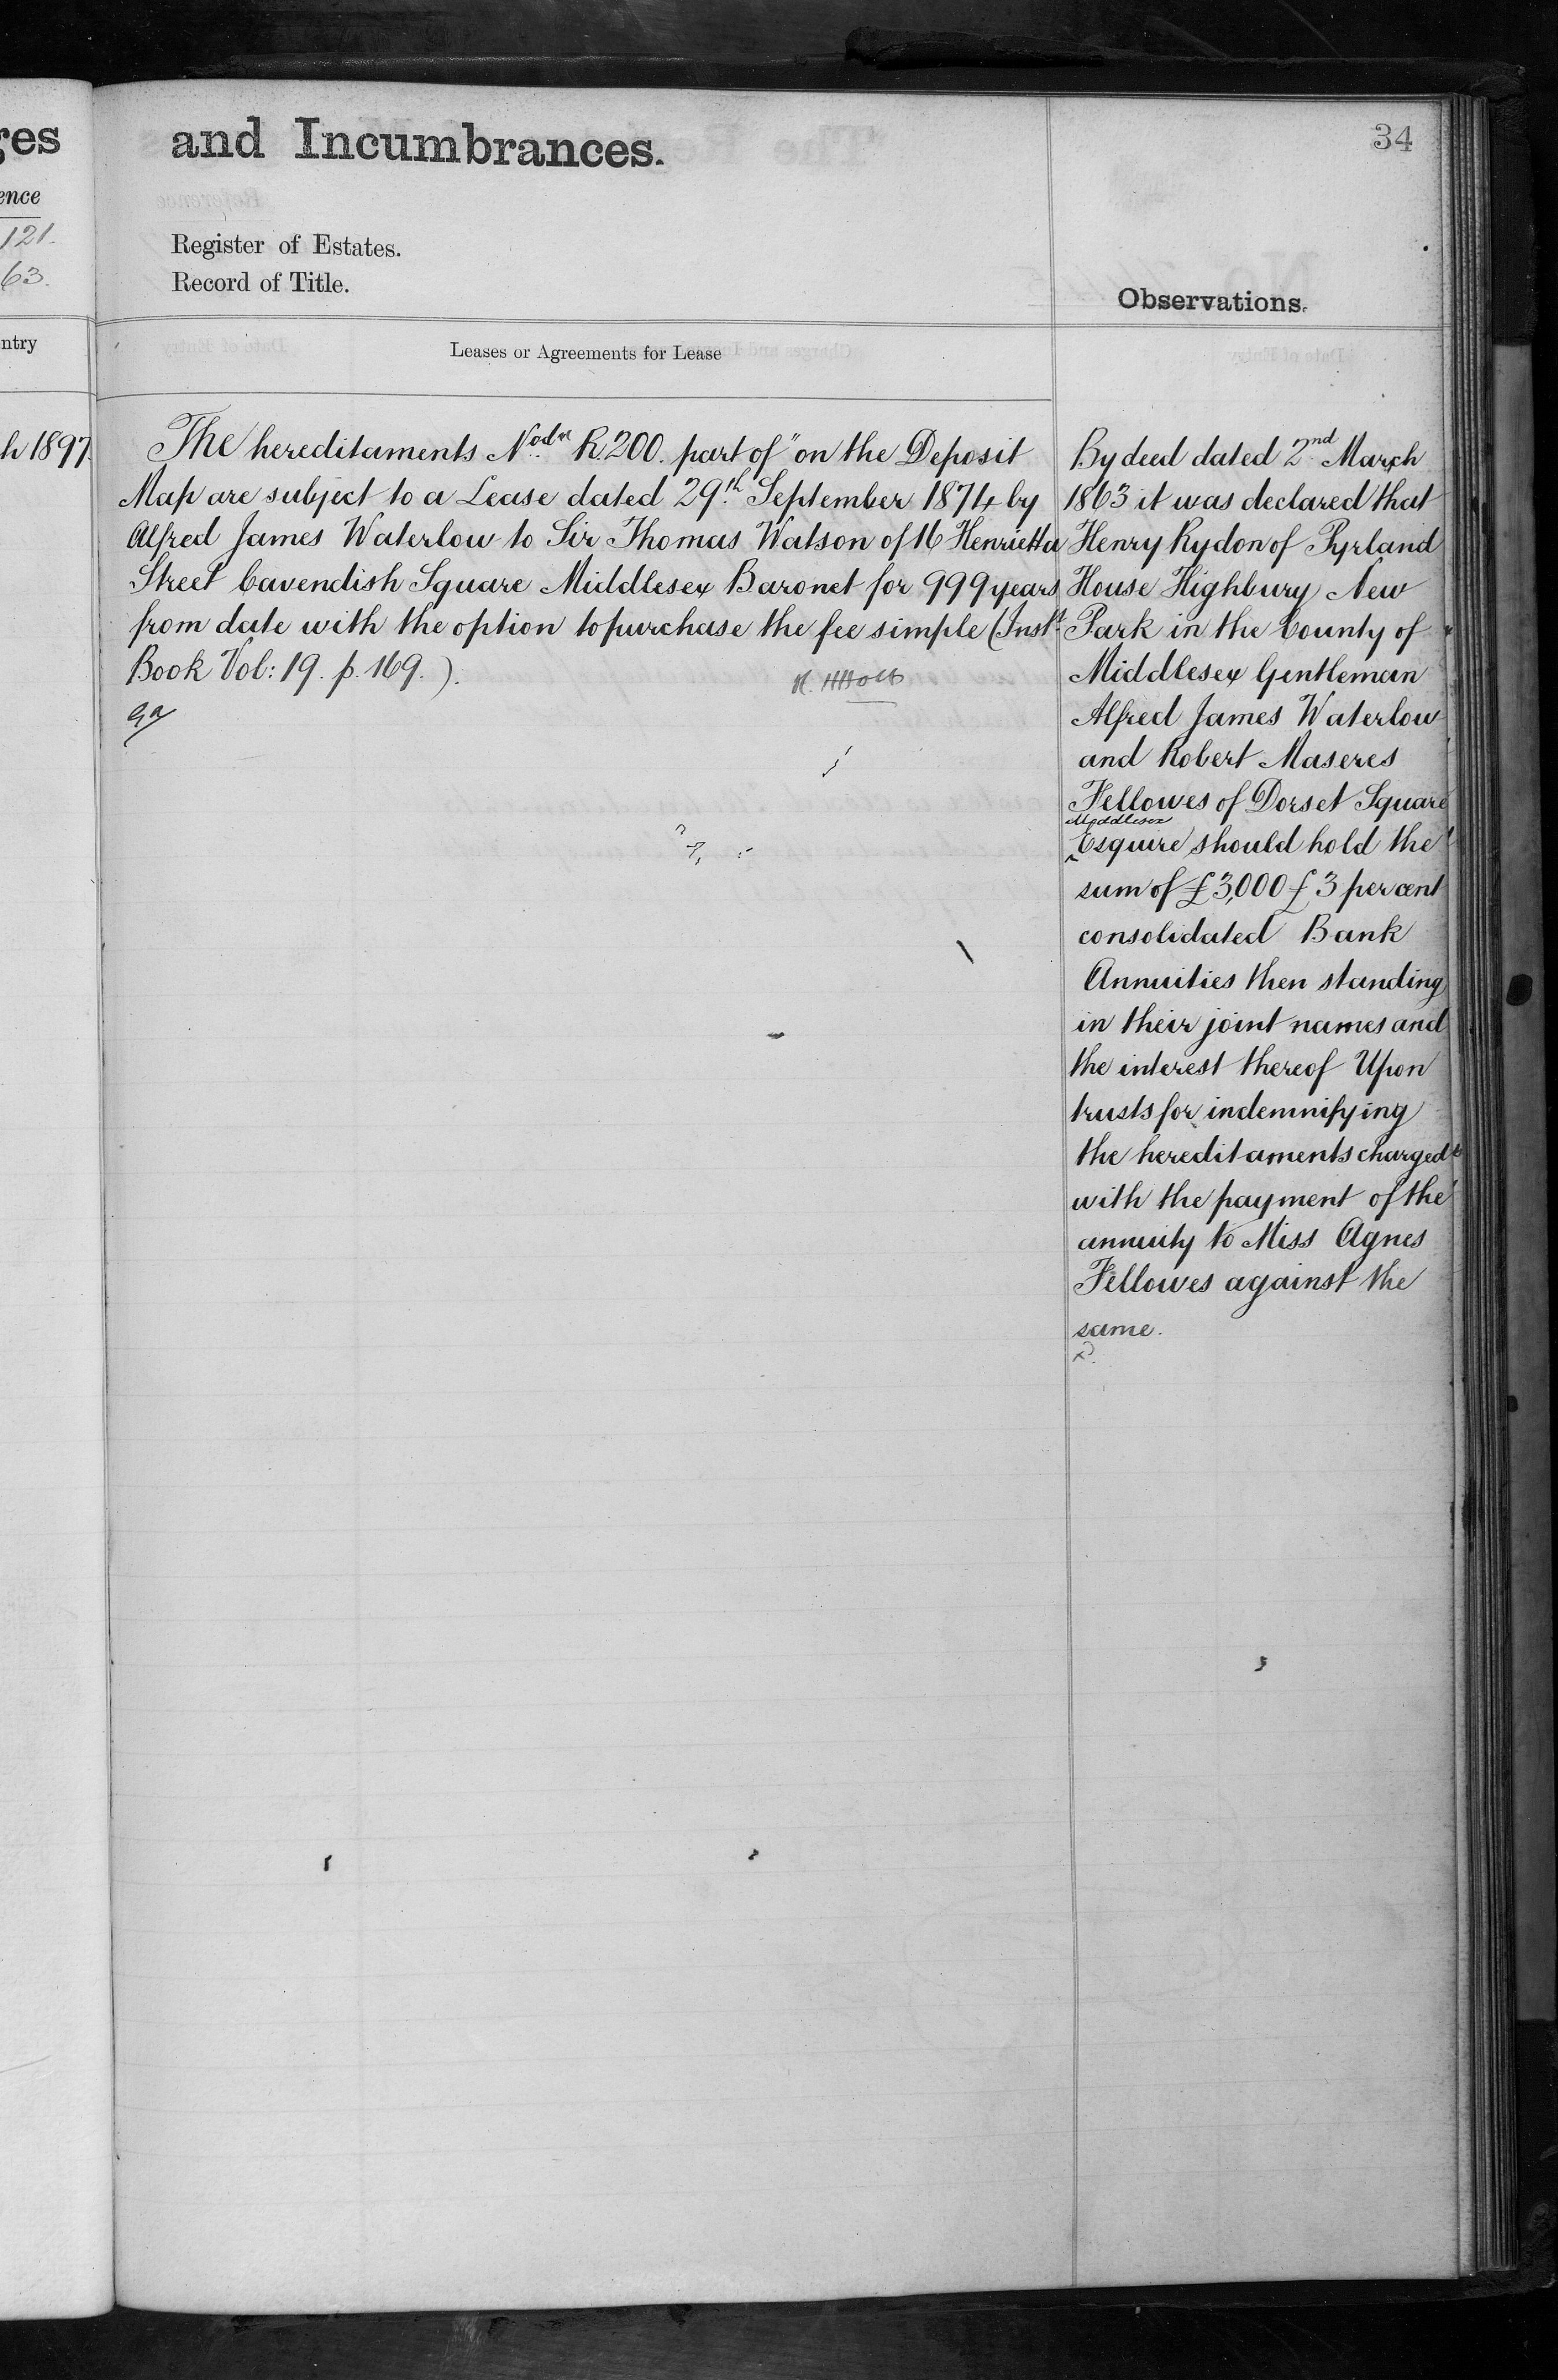 ges
ence
121.
63.
ntry
h 1897.
and Incumbrances.
34
Register of Estates.
Record of Title.
Observations.
Leases or Agreements for Lease
The hereditaments No.ed R.200. part of" on the Deposit
Map are subject to a Lease dated 29th September 1874 by
Alfred James Waterlow to Sir Thomas Watson of 16 Henrietta
Street Cavendish Square Middlesex Baronet for 999 years
from date with the option to purchase the fee simple (Inst.
Book Vol: 19. p. 169.).
By deed dated 2nd March
1863 it was declared that
Henry Rydon of Pyrland
House Highbury New
Park in the County of
Middlesex Gentleman
Alfred James Waterlow
and Robert Maseres
Fellowes of Dorset Square
Middlesex
Esquire should hold the
sum of £3,000 £3 per cent
consolidated Bank
Annuities then standing
in their joint names and
the interest thereof Upon
trusts for indemnifying
the hereditaments charged
with the payment of the
annuity to Miss Agnes
Fellowes against the
same.